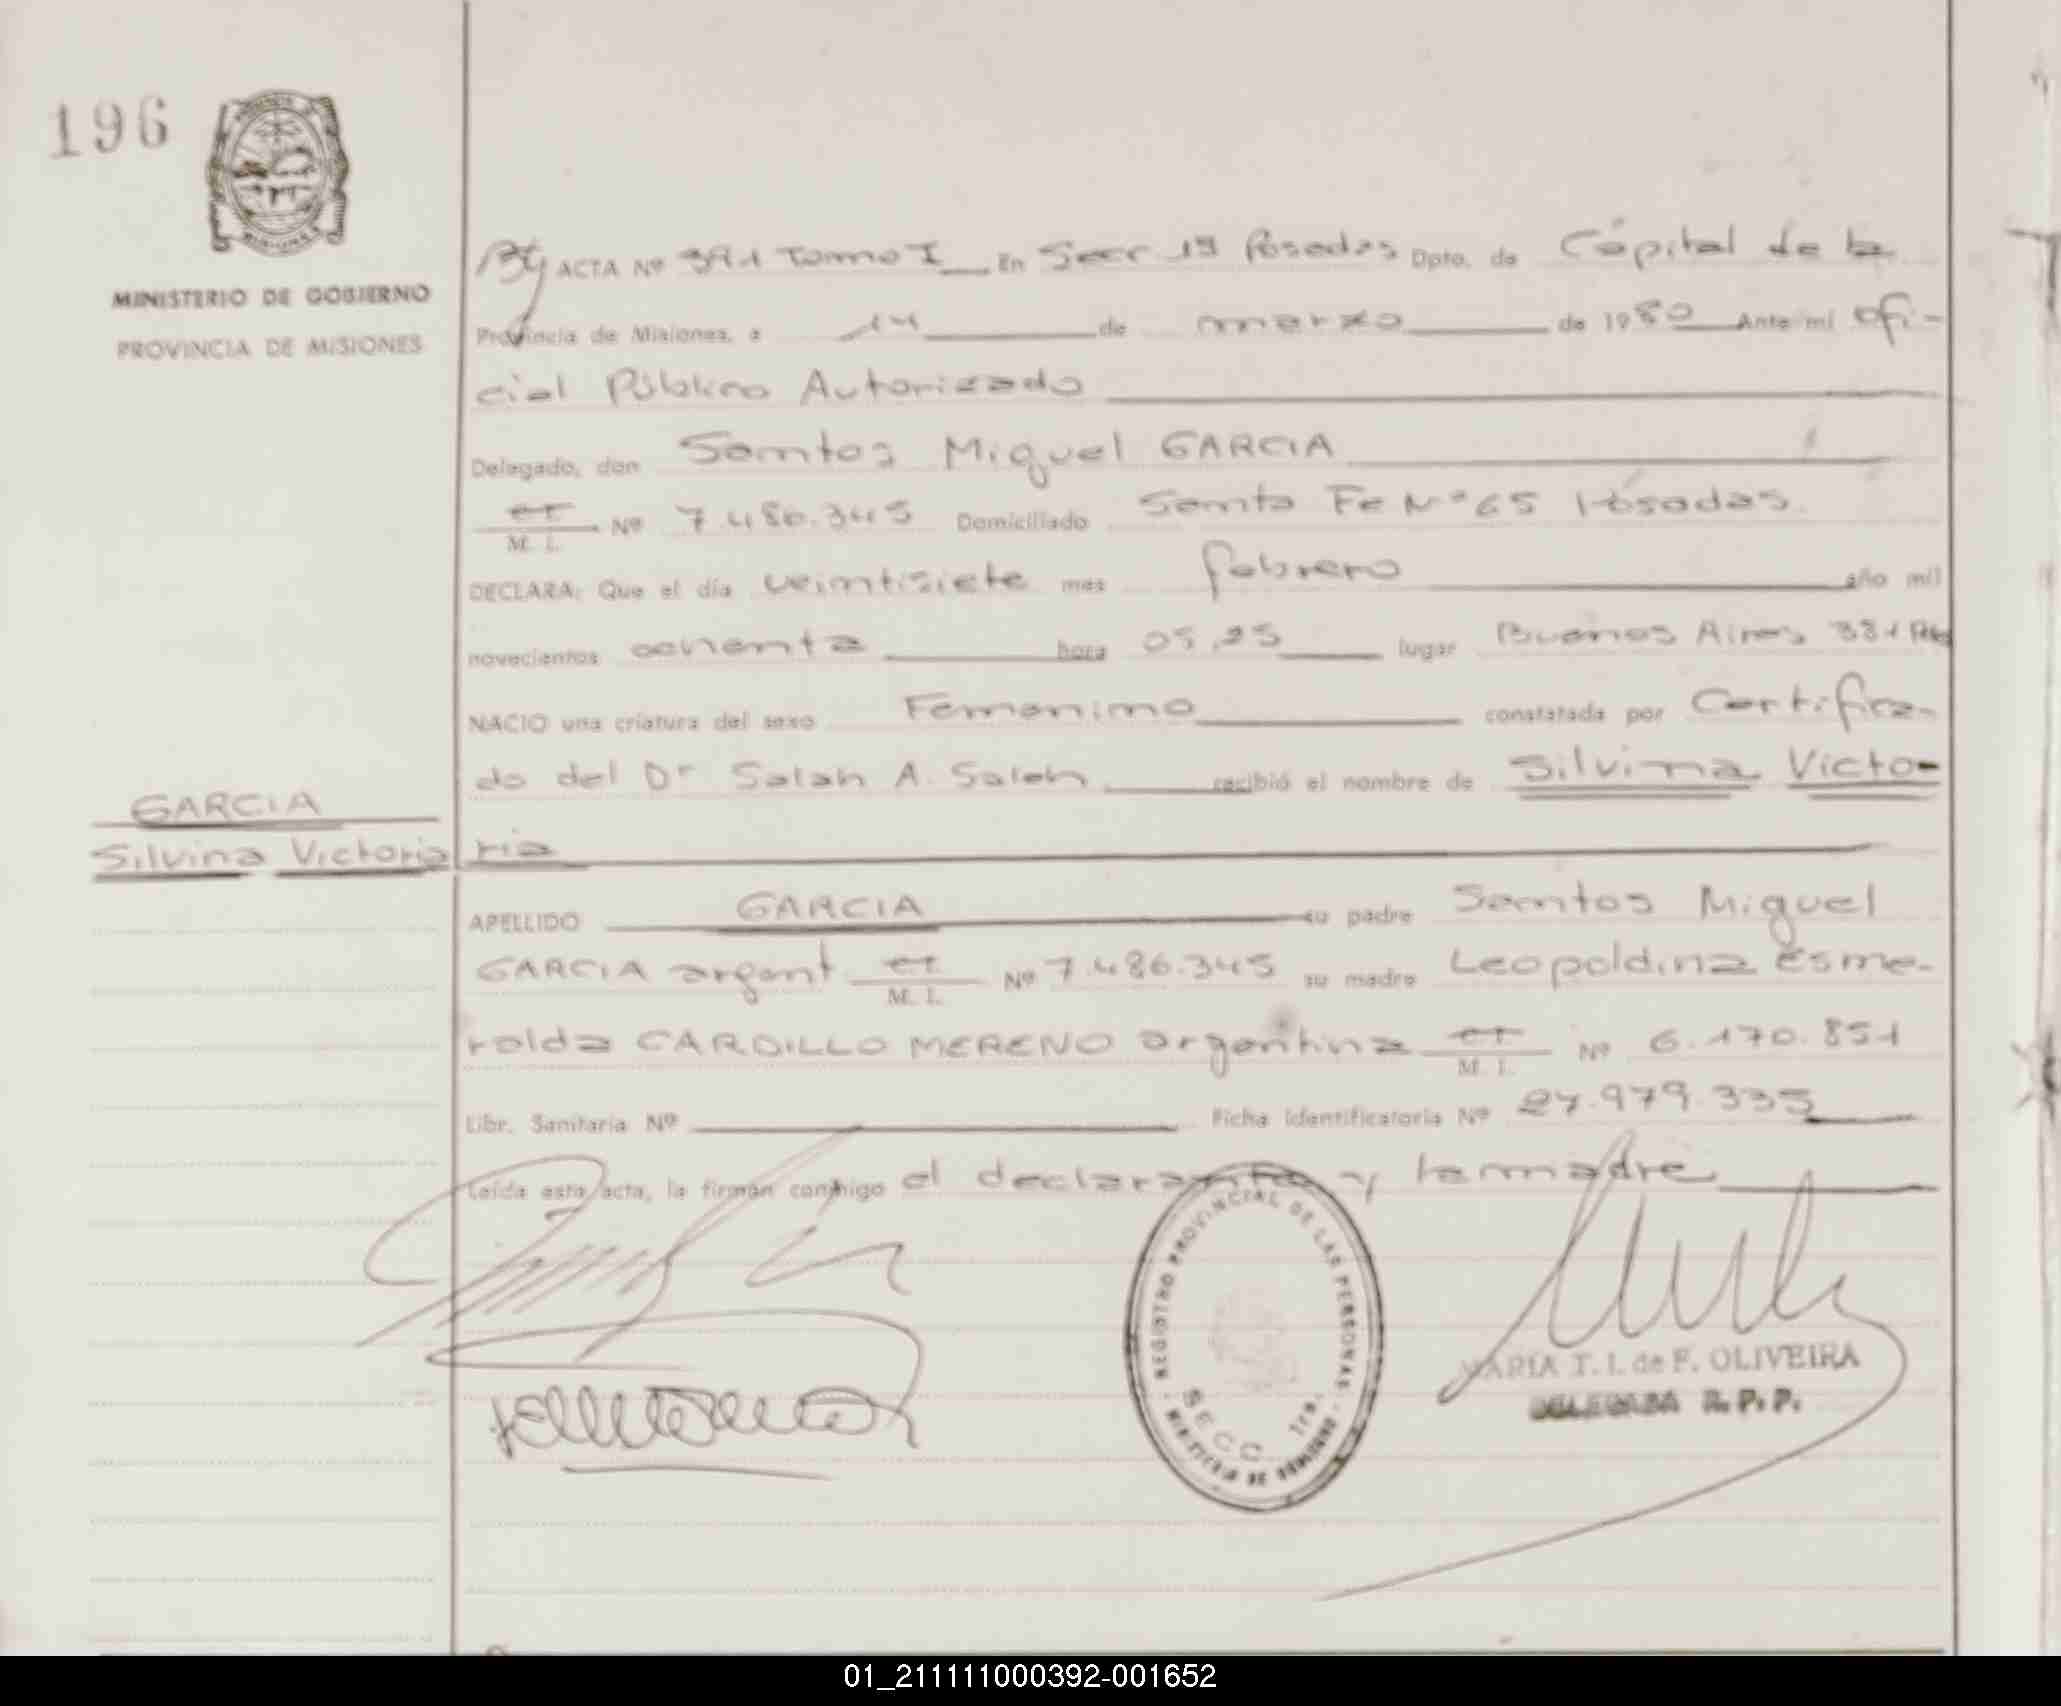 196
MINISTERIO DE GOBIERNO
PROVINCIA DE MISIONES
ACTA Nº 391 Tomo I En Secc 1ª Posadas Dpto. de Cápital de la
Provincia de Misiones, a 14 de marzo de 1980 Ante mi ofi-
cial Público Autorizado
Delegado, don Santos Miguel GARCIA
CI
M. I. Nº 7.486.345 Domiciliado Santa Fe Nº 65 Posadas.
DECLARA: Que el día veintisiete mes febrero año mil
novecientos ochenta hora 05,25 lugar Buenos Aires 381
NACIO una criatura del sexo Femenino constatada por Certifica-
do del Dr Salah A. Saleh recibió el nombre de Silvina Victo-
ria
GARCIA
Silvina Victoria
APELLIDO GARCIA su padre Santos Miguel
GARCIA argent CI
M. I. Nº 7.486.345 su madre Leopoldina Esme-
ralda CARDILLO MERENO argentina CI
M. I. Nº 6.170.851
Libr. Sanitaria Nº Ficha Identificatoria Nº 27.979.335
Leída esta acta, la firman conmigo el declarante y la madre
REGISTRO PROVINCIAL DE LAS PERSONAS
SECC 1ra.
MINISTERIO DE GOBIERNO
MARIA T. I. de F. OLIVEIRA
DELEGADA R. P. P.
01_211111000392-001652